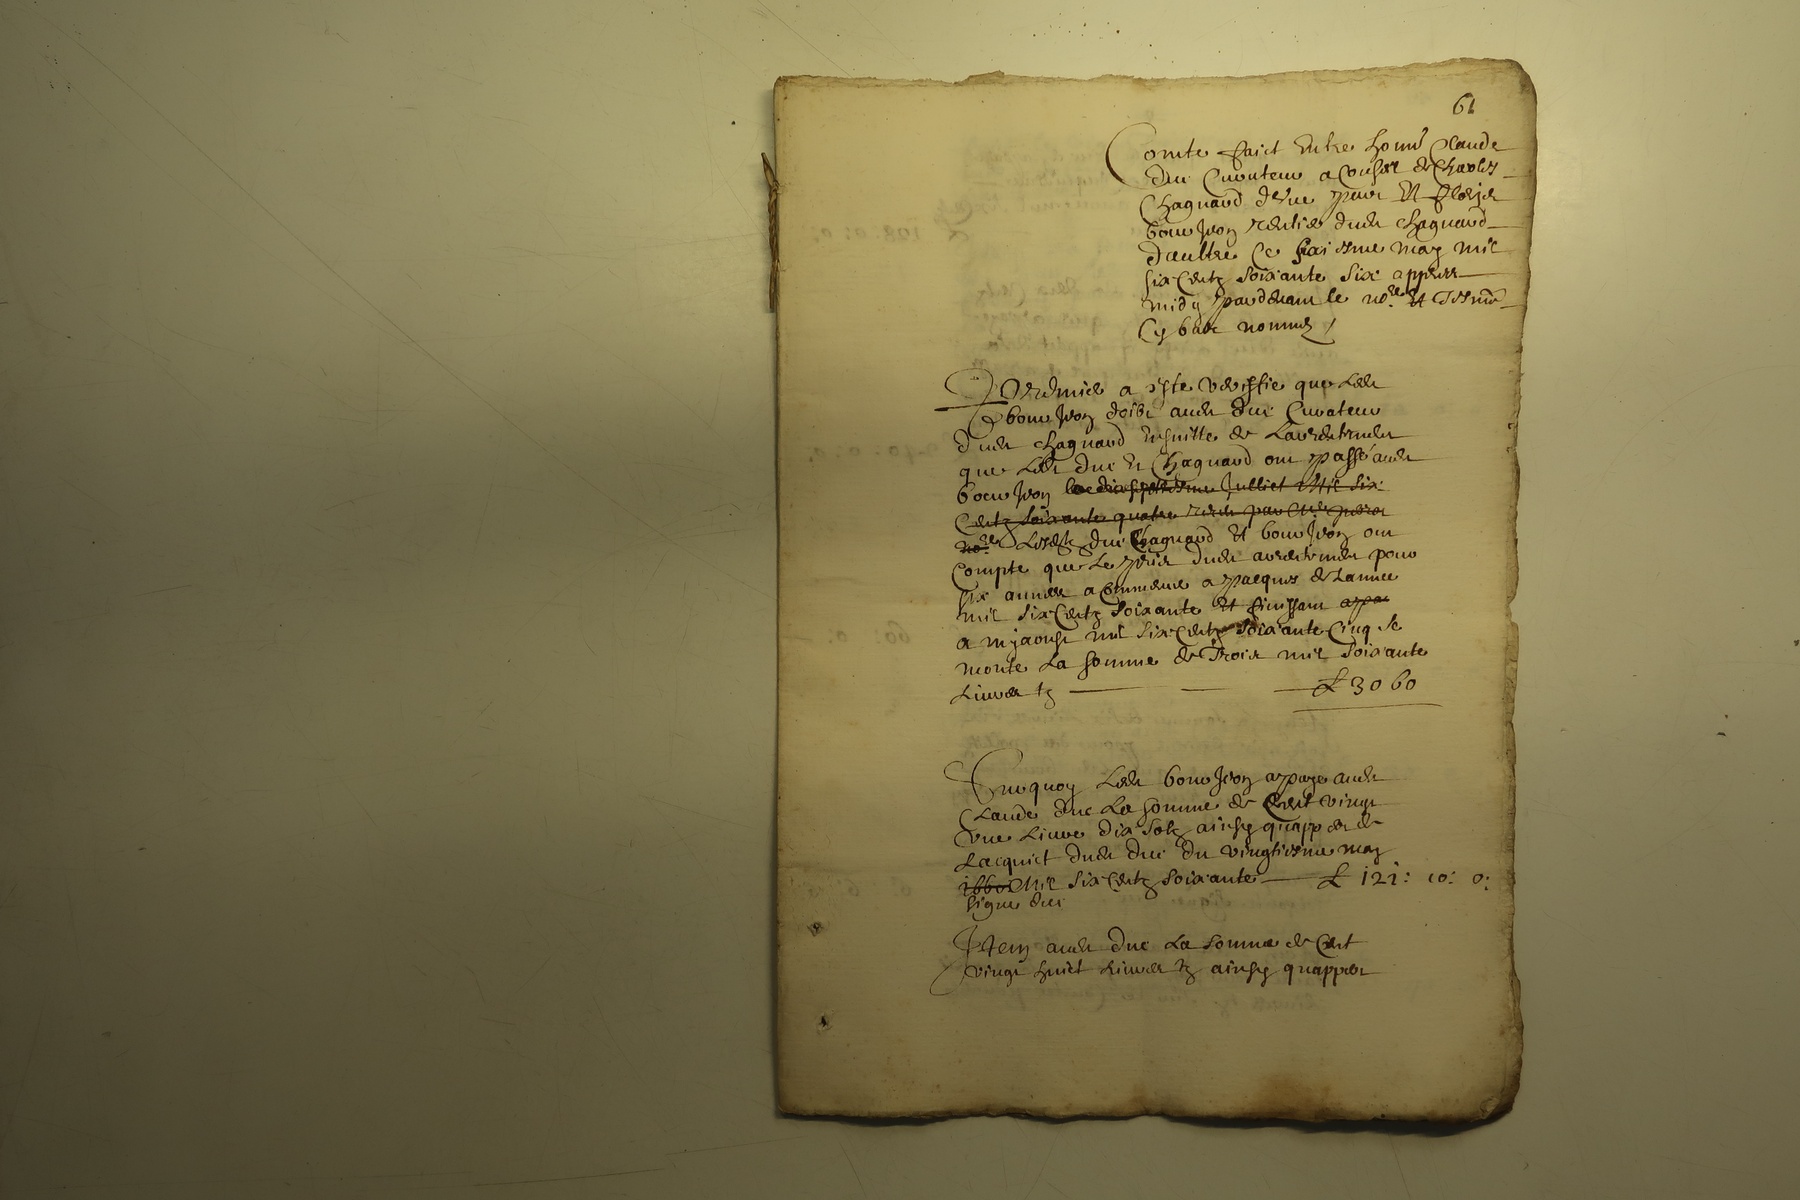 61
Comte faict Entre honn Claude
Duc Curateur a Conseil de Charles
Chagnard d'Une part Et
bouvJeon rentier dudt Chagnard
d'aultre Ce may mil
six Centz soixante six appres
midy pardevant le nore Et Tesm
Cy bas nommez /
Premier a este veriffie que Ledt
bouvJeon doibt audt Duc Curateur
dudt Chagnard Ensuitte de
que Ledt Duc Et Chagnard ont passé audt
bouvJeon le dixseptiesme Julliet Mil six
Centz soixante quatre par
nore Lesdts Duc Chagnard Et bouvJeon ont
Compte que Le prix dudt pour
six annees a Commence a pacques de Lannee
mil six Centz soixante Et finissant
a mil six Centz soixante Cinq se
monte La somme de Trois mil soixante
Livres tz £ 3060
Surquoy Ledt bouvJeon a paye audt
Claude Duc La somme de Cent vingt
une Livre dix solz ainsy quapp de
Lacquict dudt Duc du vingtiesme may
1660 Mil six Centz soixante £ 121: 10: 0:
signe Duc
Item audt Duc La somme de Cent
vingt huict Livres tz ainsy quappert